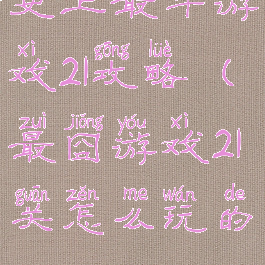 史上最牛游
xì gōng lüè
戏21攻略（
zuì jiǒng yóu xì
最囧游戏21
guān zěn me wán de
关怎么玩的